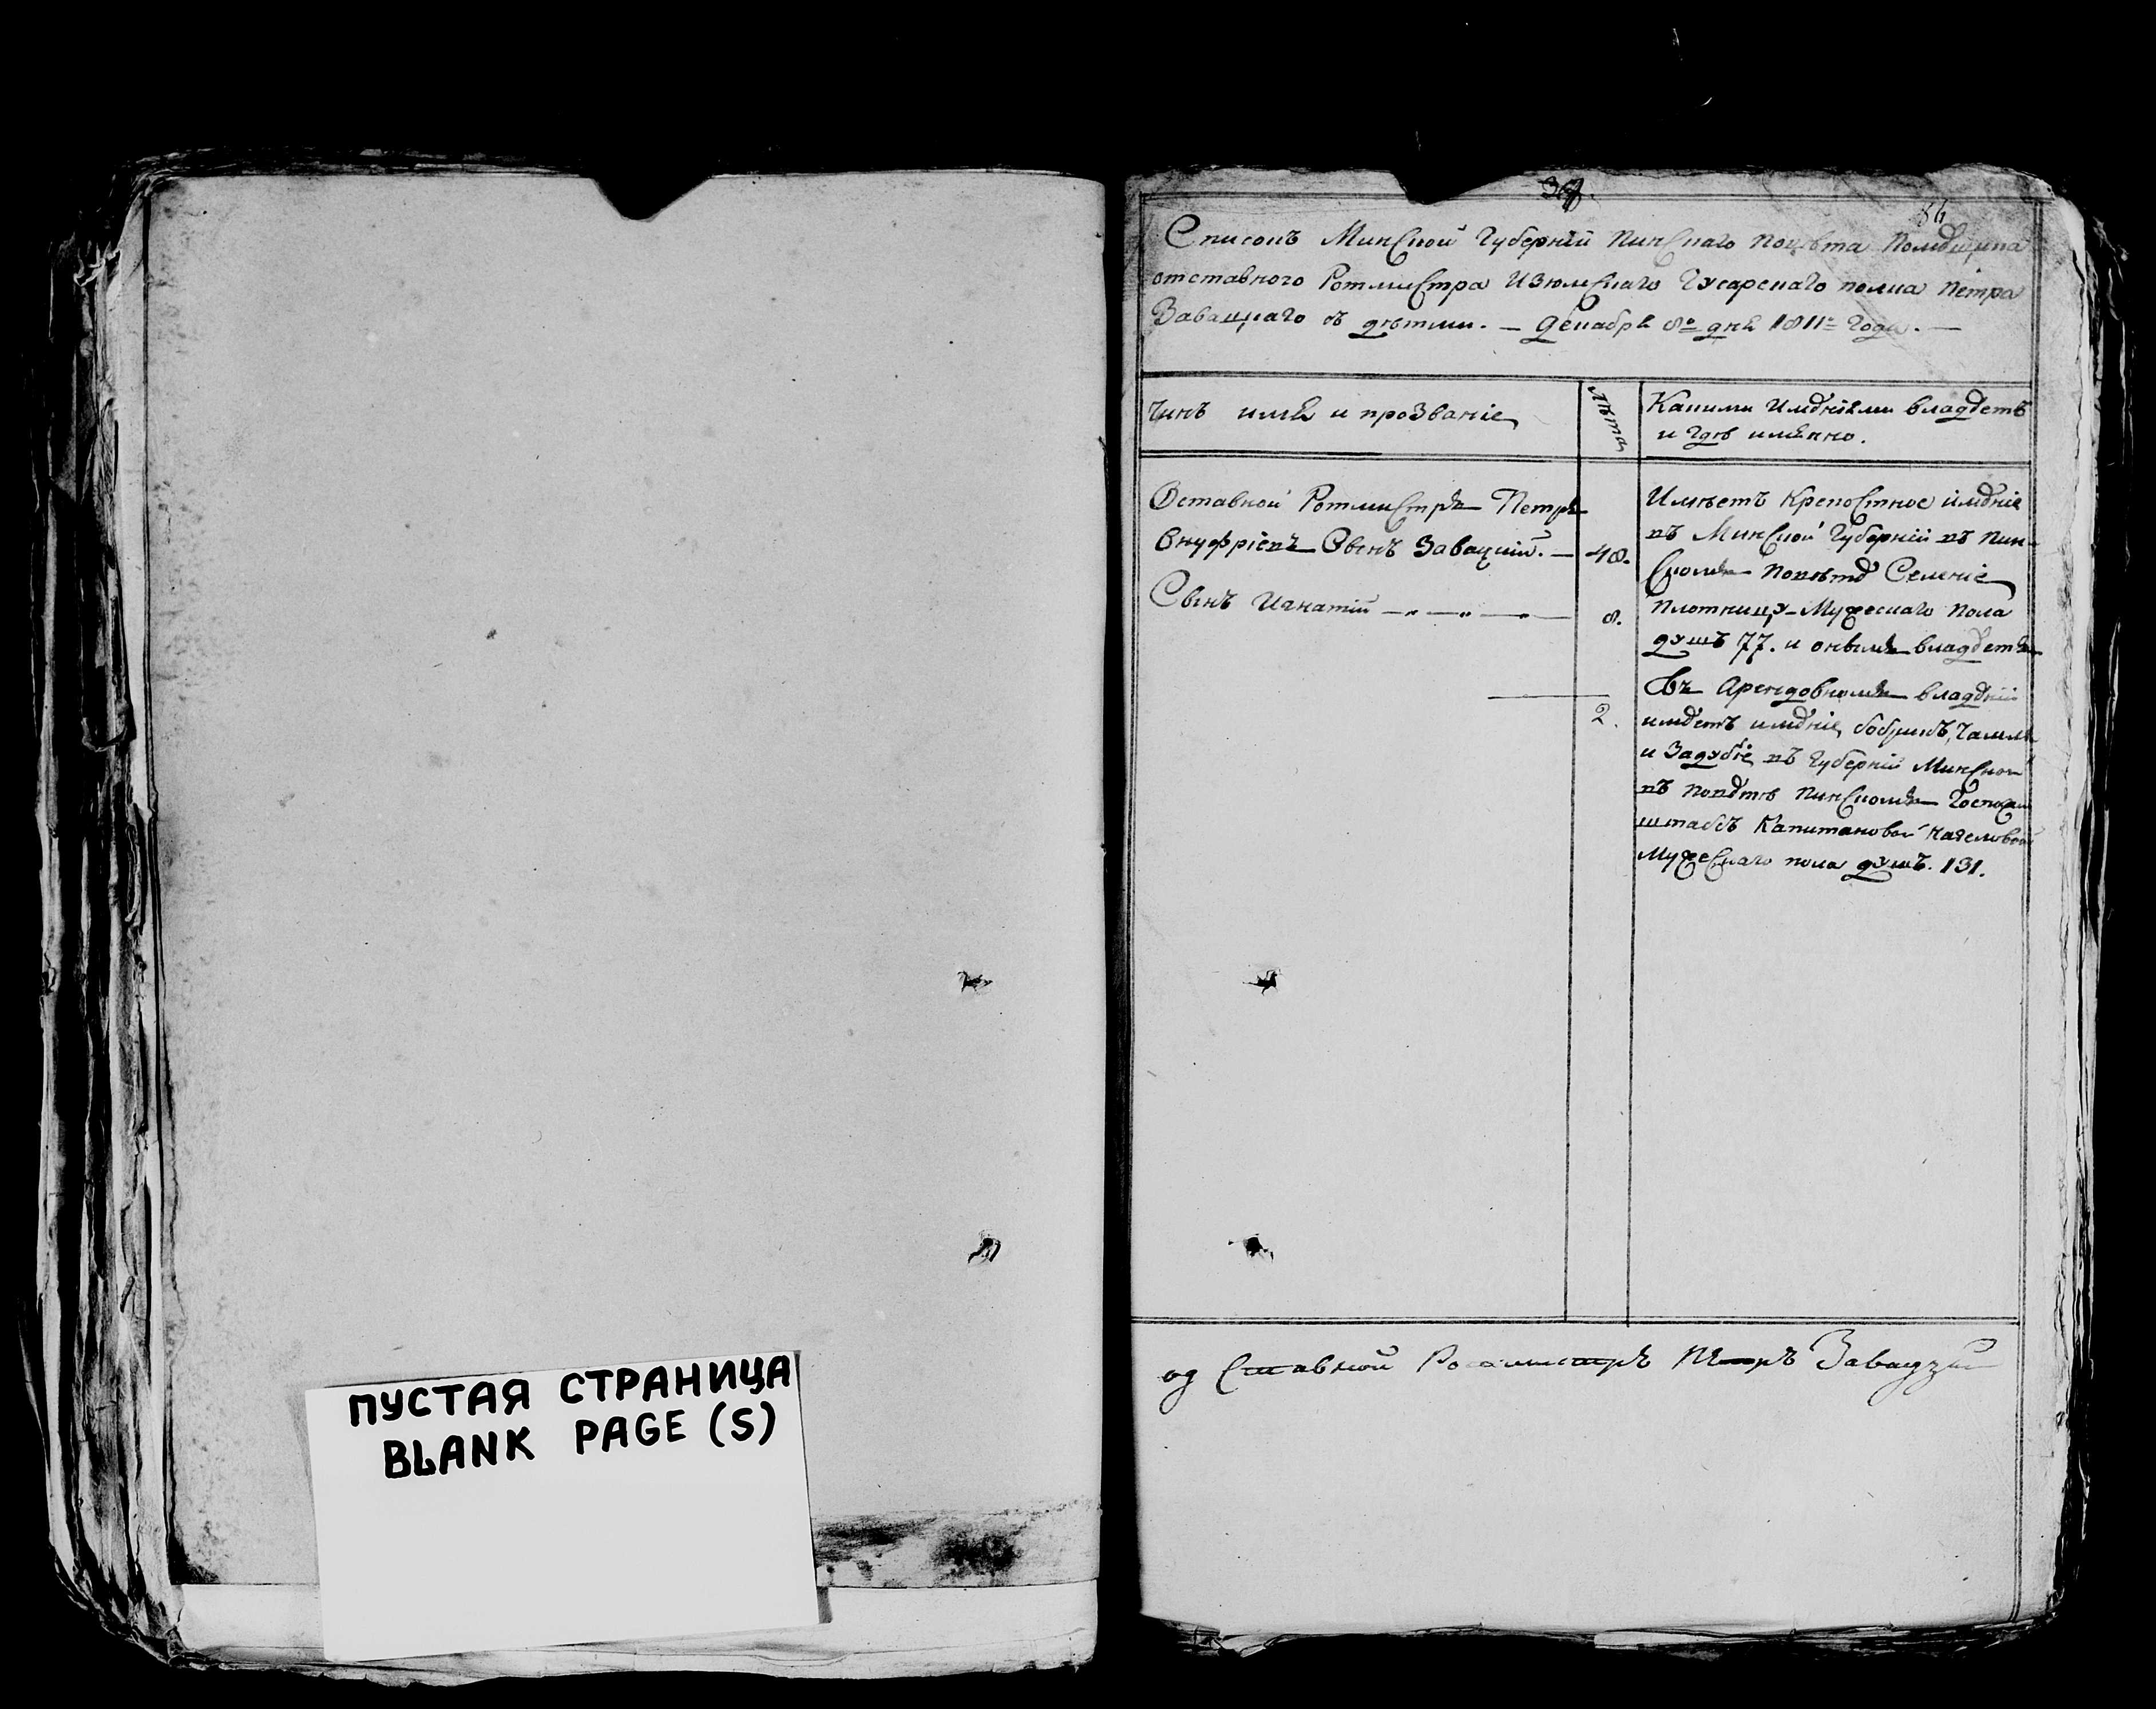 ПУСТАЯ СТРАНИЦА
BLANK PAGE (S)
Списокъ Минской Губерніи Пинскаго Повѣта Помѣщика
отставного Ротмистра Изюмскаго Гусарскаго полка Петра
Завацкаго съ дѣтми. — Декабря 8º дня 1811º года. —
Чинъ имя и прозваніе
Лѣта
Какими имѣніями владѣетъ
и гдѣ имянно.
Оставной Ротмистръ Петръ
Ануфріевъ Сынъ Завацкій. — 48.
Сынъ Игнатій — 8.
2.
Имѣетъ крепостное имѣніе
въ Минской Губерніи въ Пин-
скомъ Повѣтѣ Селеніе
Плотницу Мужескаго пола
душъ 77. и онымъ владѣетъ
Въ Арендовномъ владѣніи
имѣетъ имѣніе
и Задубіе въ Губерніи Минской
въ Повѣтѣ Пинскомъ Госпожи
штабсъ Капитановой
Мужескаго пола душъ. 131.
од Ставной Росмистръ Петръ Завадзкій